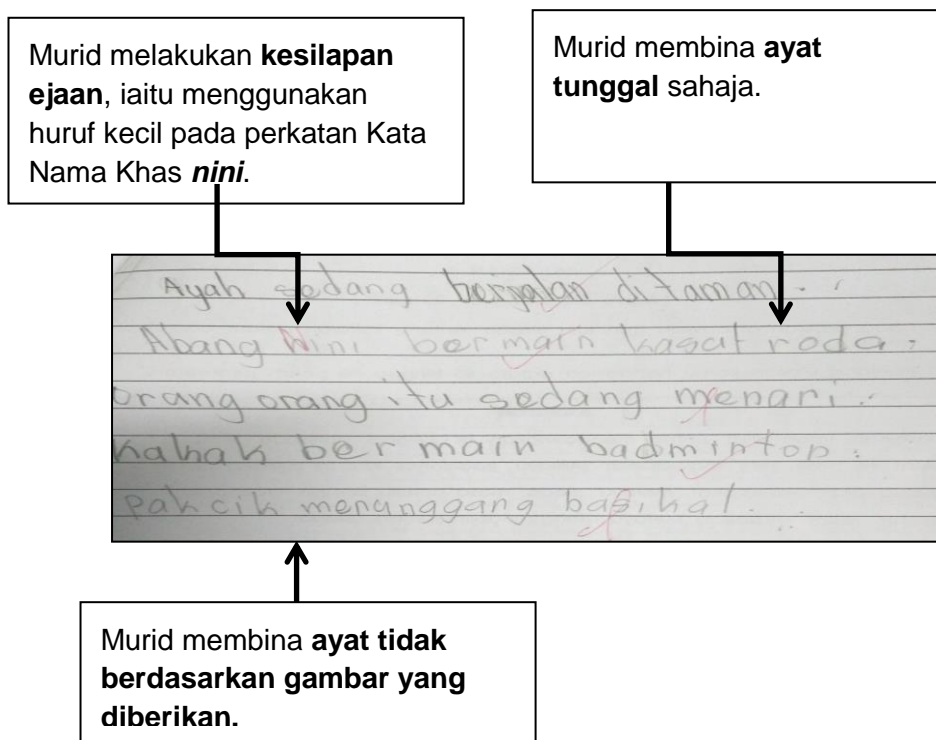 Murid melakukan kesilapan
ejaan, iaitu menggunakan
huruf kecil pada perkatan Kata
Nama Khas nini.
Murid membina ayat
tunggal sahaja.
Ayah sedang berjalan ditaman.
Abang Nini bermain kasut roda.
orang orang itu sedang menari.
kakak bermain badminton.
pakcik menunggang basikal.
Murid membina ayat tidak
berdasarkan gambar yang
diberikan.